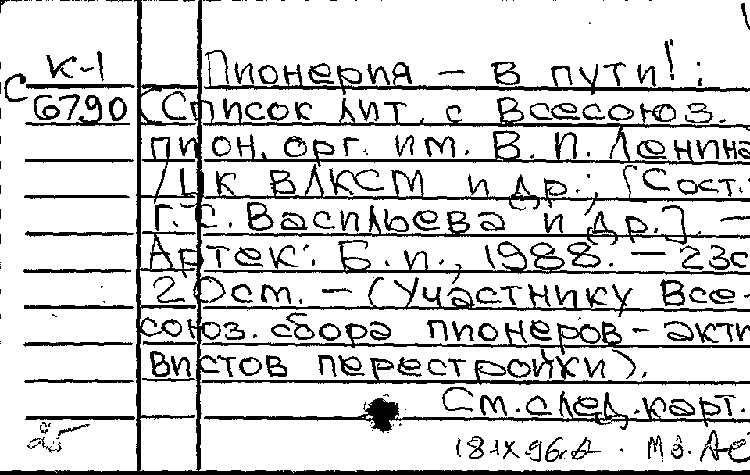 К-1 Пионерия — в пути! :
С 6790 (Список лит. с Всесоюз.
пион. орг. им. В. П. Ленина
/ ЦК ВЛКСМ и др.; [Сост.:
Г. С. Васильева и др.]. —
Артек: Б. и., 1988. — 23с
20см. — (Участнику Все-
союз. сбора пионеров - акти
вистов перестройки).
См. след. карт.
25 18 IX 96